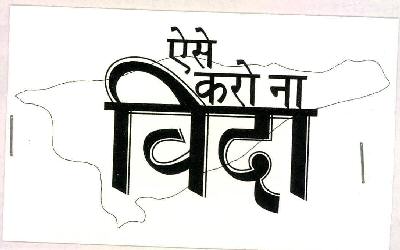 ऐसे
करो ना
विदा